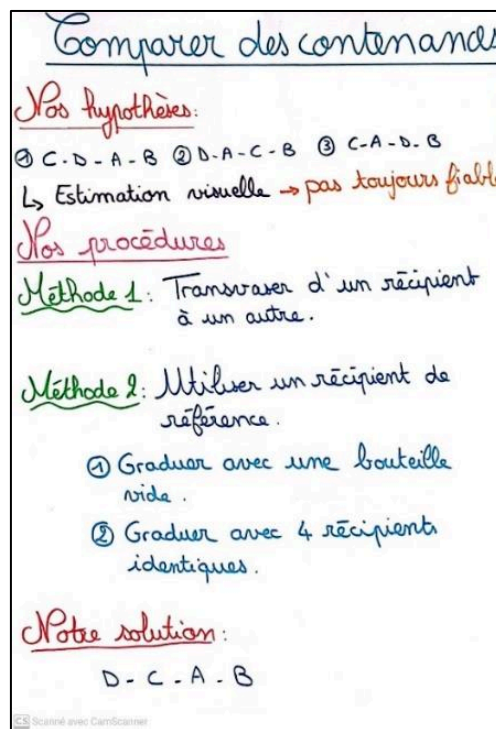 Comparer des contenances
Nos hypothèses:
① C-D-A-B ② D-A-C-B ③ C-A-D-B
↳ Estimation visuelle → pas toujours fiable
Nos procédures
Méthode 1: Transvaser d'un récipient
à un autre.
Méthode 2: Utiliser un récipient de
référence.
① Graduer avec une bouteille
vide.
② Graduer avec 4 récipients
identiques.
Notre solution:
D-C-A-B
CS Scanné avec CamScanner